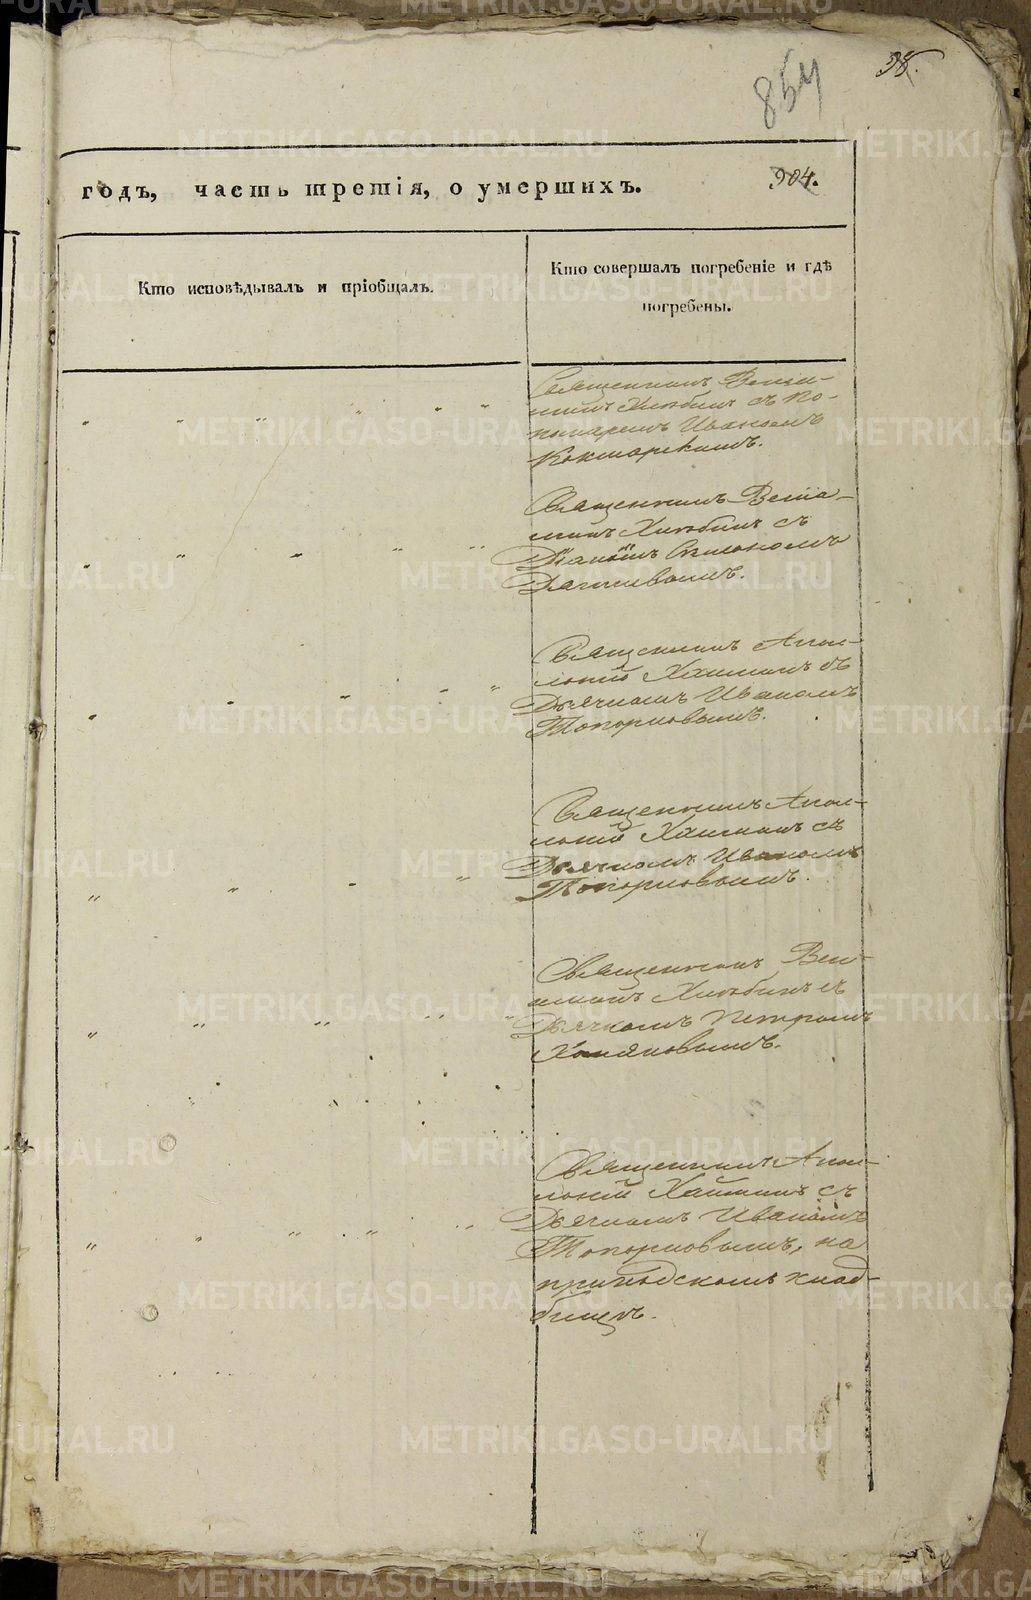 854
38.
годъ, часть третія, о умершихъ.
904.
Кто исповѣдывалъ и пріобщалъ.
Кто совершалъ погребеніе и гдѣ
погребены.
Священникъ Веніа-
минъ Хлѣбинъ съ По-
намаремъ Иваномъ
Кокшарскимъ.
Священникъ Веніа-
минъ Хлѣбинъ съ
Діакономъ
Священникъ Апол-
лоній съ
Дьячкомъ Иваномъ
Топорковымъ.
Священникъ Апол-
лоній съ
Дьячкомъ Иваномъ
Топорковымъ.
Священникъ Вен-
іаминъ Хлѣбинъ съ
Дьячкомъ Петромъ
Хомяковымъ.
Священникъ Апол-
лоній съ
Дьячкомъ Иваномъ
Топорковымъ, на
приходскомъ клад-
бищѣ.
METRIKI.GASO-URAL.RU